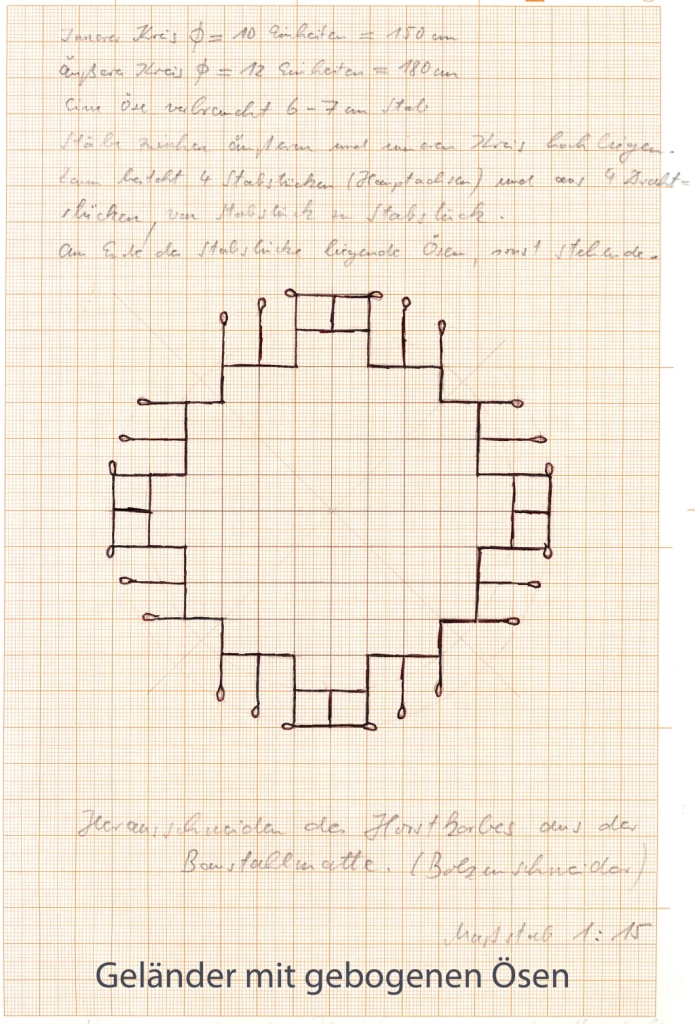 Innerer Kreis ϕ = 10 Einheiten = 150 cm
Äußerer Kreis ϕ = 12 Einheiten = 180 cm
Eine Öse verbraucht 6 – 7 cm Stab
Stäbe zwischen äußerem und inneren Kreis hoch biegen.
besteht 4 Stabstücken (Hauptachsen) und aus 4 Draht=
stücken, von Stabstück zu Stabstück.
Am Ende der Stabstücke liegende Ösen, sonst stehende.
Herausschneiden des Horstkorbes aus der
Baustallmatte. (Bolzenschneider)
Maßstab 1:15
Geländer mit gebogenen Ösen